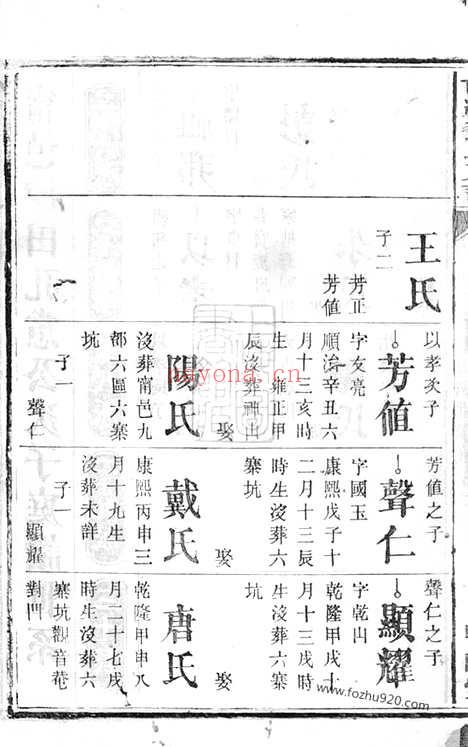 王氏
子二
芳正
芳値
以孝次子
芳値
字友亮
順治辛丑六
月十三亥時
生雍正甲
辰沒葬神山
娶
陽氏
沒葬甯邑九
都六區六寨
坑
子一
聲仁
芳値之子
聲仁
字國玉
康熙戊子十
二月十三辰
時生沒葬六
寨坑
娶
戴氏
康熙丙申三
月十九生
沒葬未詳
子一
顯耀
聲仁之子
顯耀
字乾山
乾隆甲戌十
月十三戌時
生沒葬六寨
坑
娶
唐氏
乾隆甲申八
月二十七戌
時生沒葬六
寨坑觀音菴
對門
huyona.cn
www.fozhu920.com